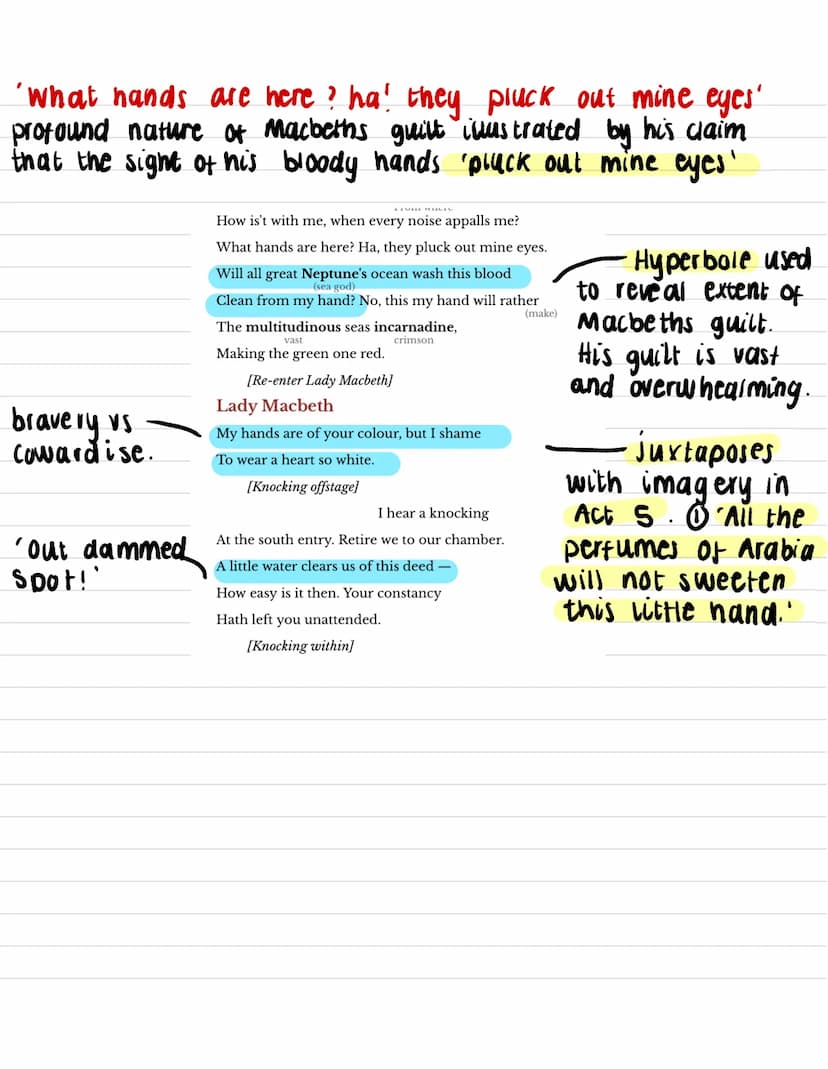 'What hands are here? ha! they pluck out mine eyes'
profound nature of Macbeths guilt illustrated by his claim
that the sight of his bloody hands 'pluck out mine eyes'
How is't with me, when every noise appalls me?
What hands are here? Ha, they pluck out mine eyes.
Will all great Neptune's ocean wash this blood
(sea god)
Clean from my hand? No, this my hand will rather
(make)
The multitudinous seas incarnadine,
vast crimson
Making the green one red.
[Re-enter Lady Macbeth]
Lady Macbeth
My hands are of your colour, but I shame
To wear a heart so white.
[Knocking offstage]
I hear a knocking
At the south entry. Retire we to our chamber.
A little water clears us of this deed —
How easy is it then. Your constancy
Hath left you unattended.
[Knocking within]
Hyperbole used
to reveal extent of
Macbeths guilt.
His guilt is vast
and overwhealming.
bravery vs
cowardise.
juxtaposes
with imagery in
Act 5. ① 'All the
perfumes of Arabia
will not sweeten
this little hand.'
'out dammed
spot!'